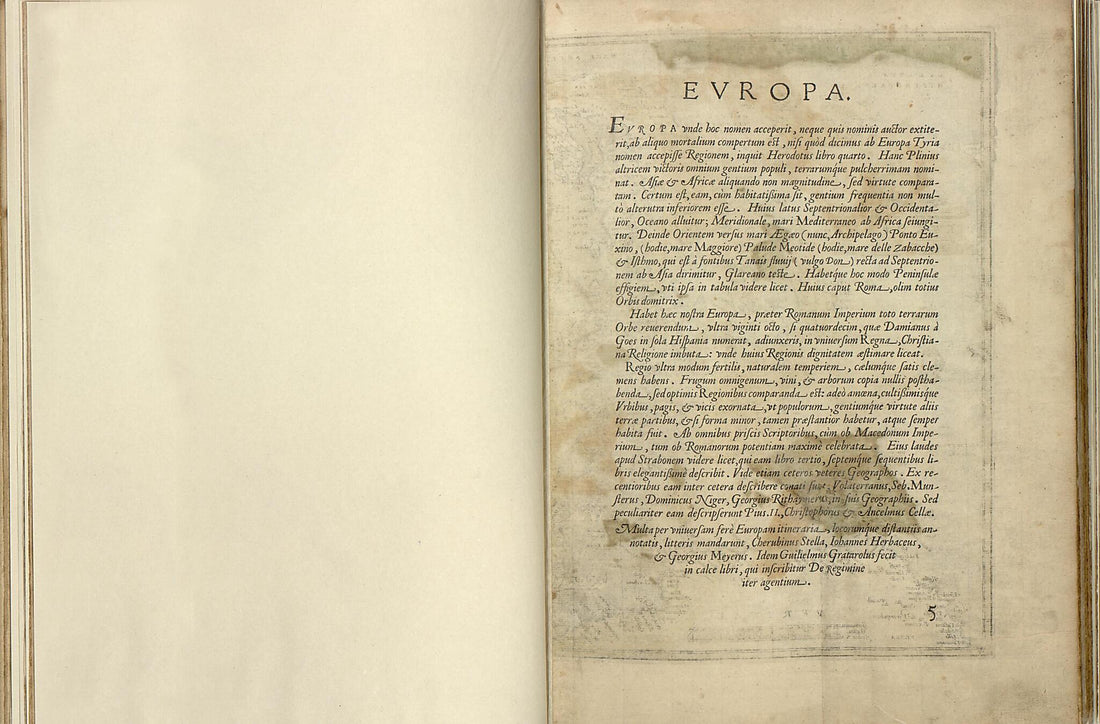 EVROPA.
EVROPA vnde hoc nomen acceperit, neque quis nominis auctor extite-
rit, ab aliquo mortalium compertum est, nisi quòd dicimus ab Europa Tyria
nomen accepisse Regionem, inquit Herodotus libro quarto. Hanc Plinius
altricem victoris omnium gentium populi, terrarumque pulcherrimam nomi-
nat. Asiæ & Africæ aliquando non magnitudine, sed virtute compara-
tam. Certum est, eam, cùm habitatissima sit, gentium frequentia non mul-
tò alterutra inferiorem esse. Huius latus Septentrionalior & Occidenta-
lior, Oceano alluitur; Meridionale, mari Mediterraneo ab Africa seiungi-
tur. Deinde Orientem versus mari Ægæo (nunc, Archipelago) Ponto Eu-
xino, (hodie, mare Maggiore) Palude Meotide (hodie, mare delle Zabacche)
& Isthmo, qui est à fontibus Tanais fluuij (vulgo Don) recta ad Septentrio-
nem ab Asia dirimitur, Glareano teste. Habetque hoc modo Peninsulæ
effigiem, vti ipsa in tabula videre licet. Huius caput Roma, olim totius
Orbis domitrix.
Habet hæc nostra Europa, præter Romanum Imperium toto terrarum
Orbe reuerendum, vltra viginti octo, si quatuordecim, quæ Damianus à
Goes in sola Hispania numerat, adiunxeris, in vniuersum Regna, Christia-
na Religione imbuta: vnde huius Regionis dignitatem æstimare liceat.
Regio vltra modum fertilis, naturalem temperiem, cælumque satis cle-
mens habens. Frugum omnigenum, vini, & arborum copia nullis postha-
benda, sed optimis Regionibus comparanda est: adeò amœna, cultissimisque
Vrbibus, pagis, & vicis exornata, vt populorum, gentiumque virtute aliis
terræ partibus, & si forma minor, tamen præstantior habetur, atque semper
habita fuit. Ab omnibus priscis Scriptoribus, cùm ob Macedonum Impe-
rium, tum ob Romanorum potentiam maximè celebrata. Eius laudes
apud Strabonem videre licet, qui eam libro tertio, septemque sequentibus li-
bris elegantissimè describit. Vide etiam ceteros veteres Geographos. Ex re-
centioribus eam inter cetera describere conati sunt, Volaterranus, Seb. Mun-
sterus, Dominicus Niger, Georgius Rithaymerus, in suis Geographiis. Sed
peculiariter eam descripserunt Pius.II., Christophorus & Ancelmus Cellæ.
Multa per vniuersam ferè Europam itineraria, locorumque distantiis an-
notatis, litteris mandarunt, Cherubinus Stella, Iohannes Herbaceus,
& Georgius Meyerus. Idem Guilielmus Gratarolus fecit
in calce libri, qui inscribitur De Regimine
iter agentium.
5